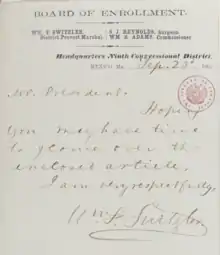 BOARD OF ENROLLMENT.
WM. F. SWITZLER, District Provost Marshal.
S. J. REYNOLDS, Surgeon
WM. S. ADAMS, Commissioner
Headquarters Ninth Congressional District,
Sep. 23
Mr. President.
Hope
You may have time
to glance over the
enclosed article,
I am very respectfully,
Wm. F. Switzler